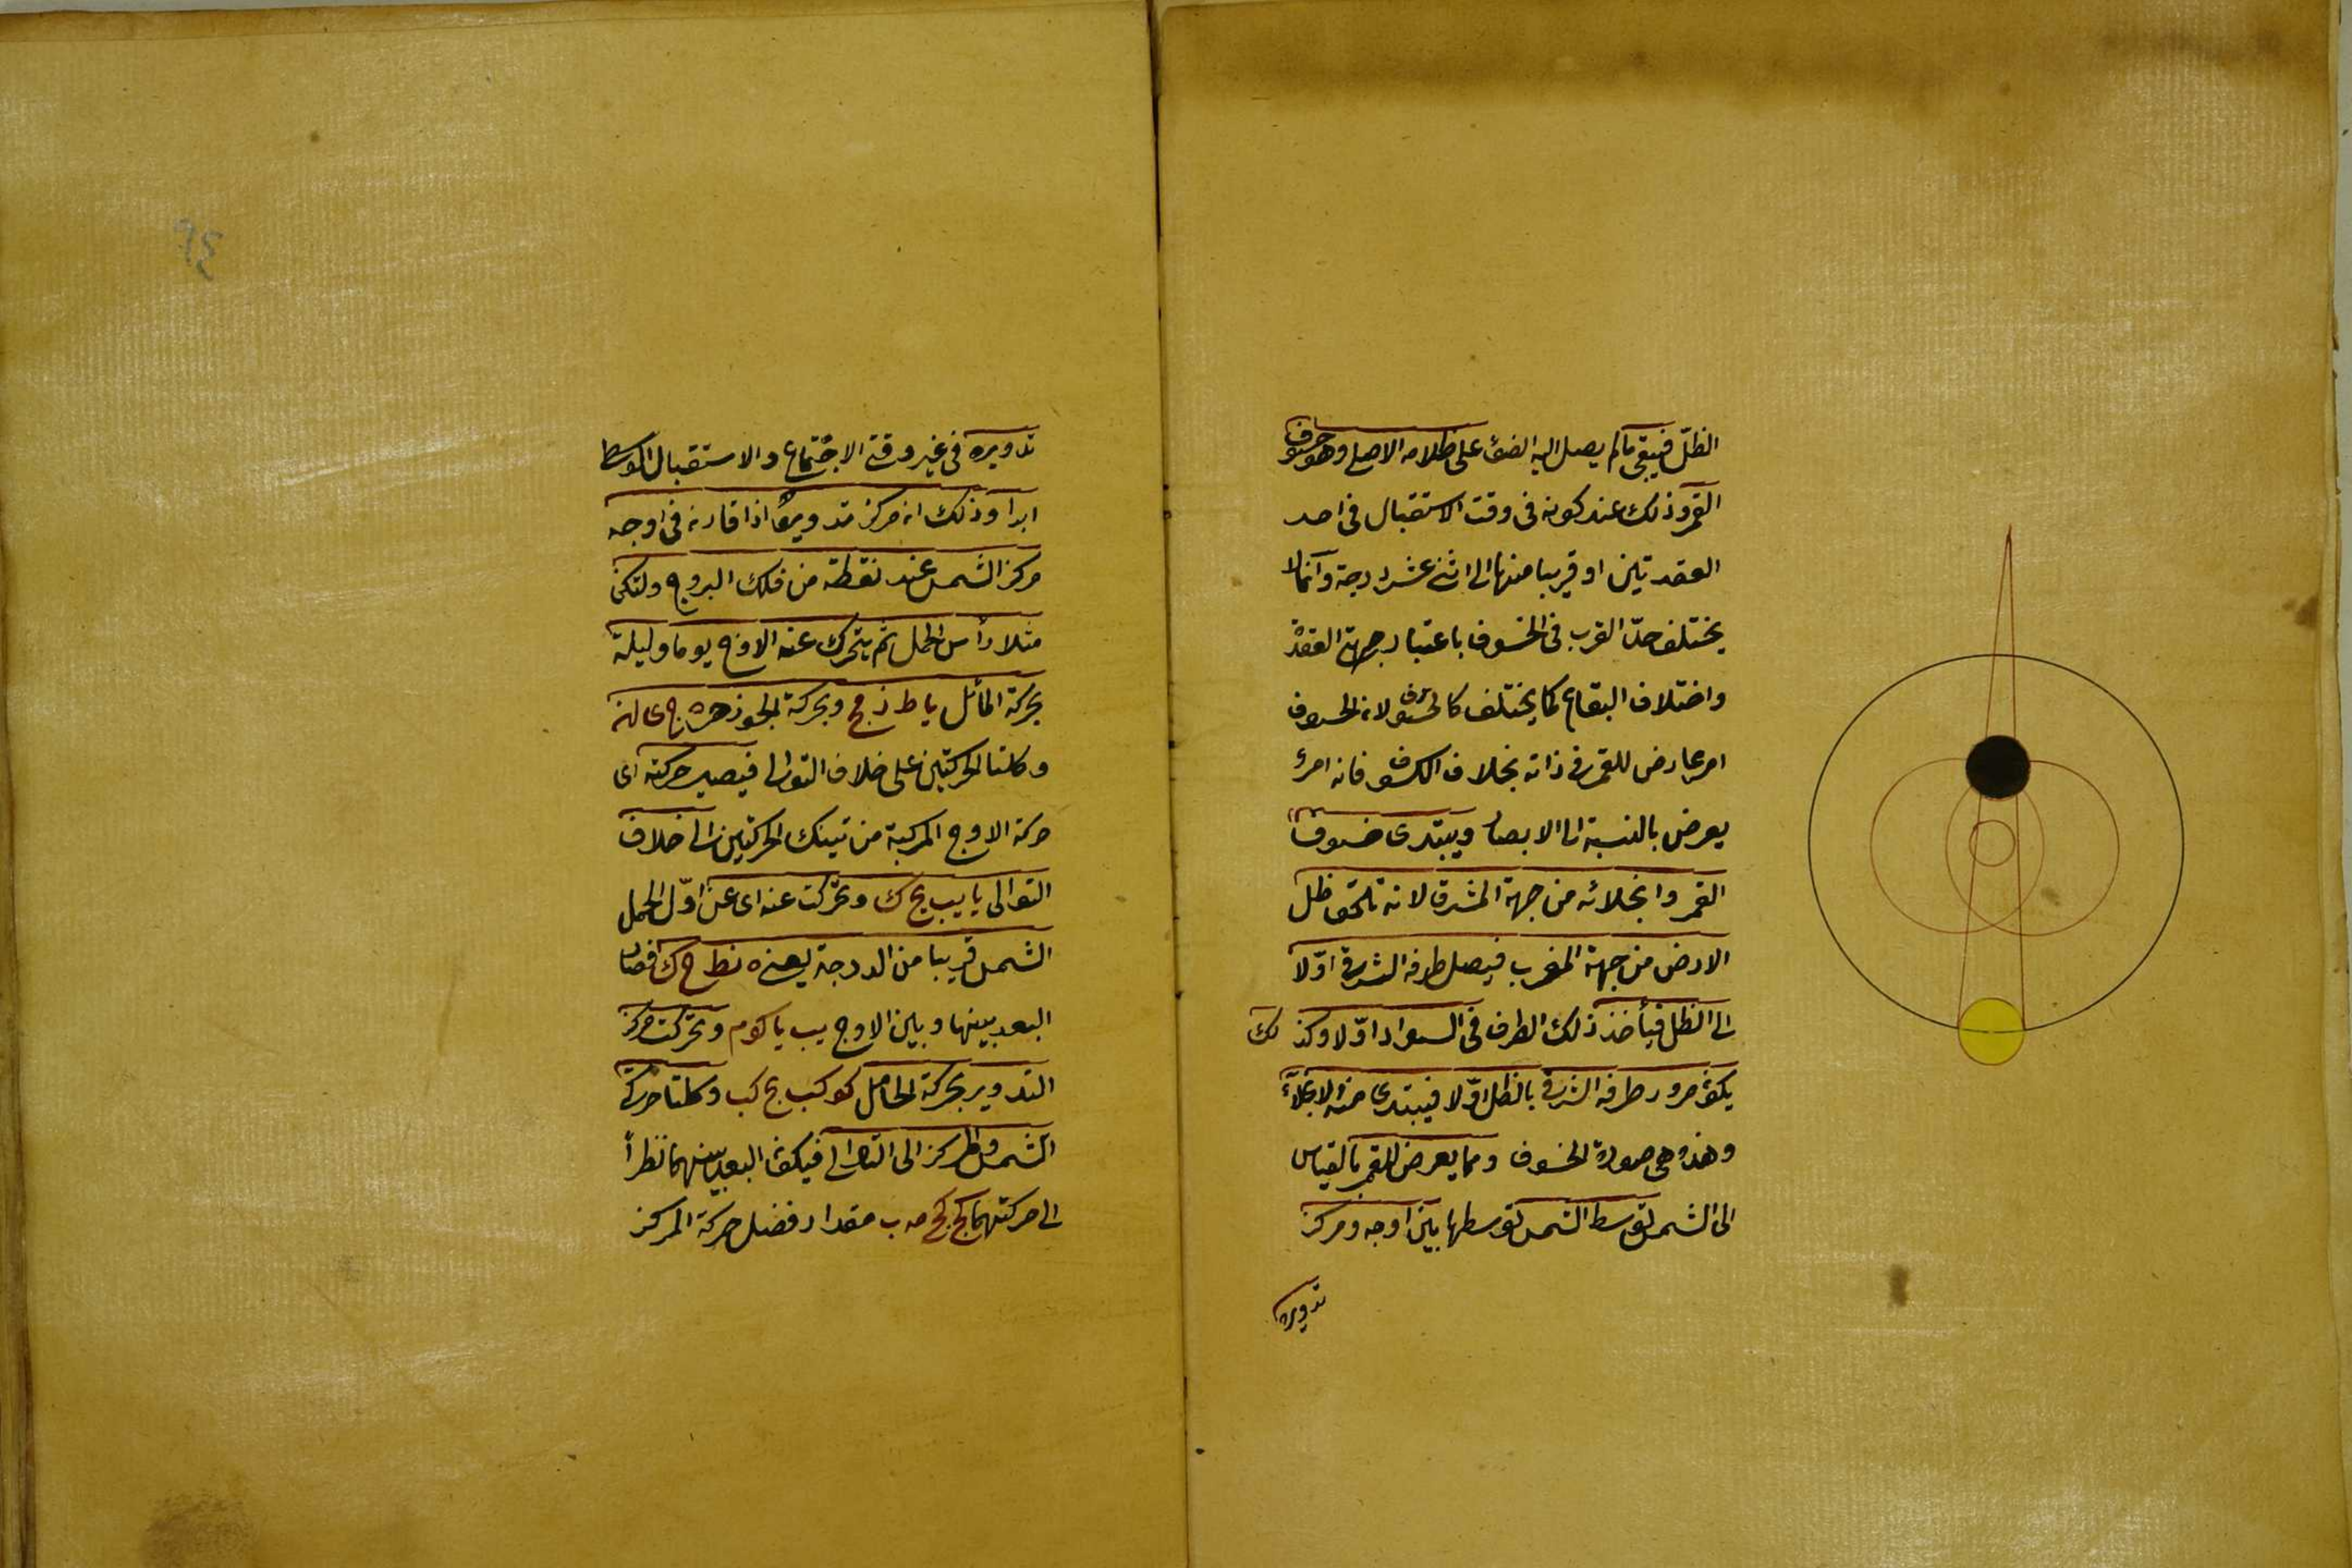 الظلّ فيبقى مالم يصل اليه الضوء على ظلامه الاصلي وهو خسوف
القمر وذلك عند كونه في وقت الاستقبال في احد
العقدتين او قريبا منها الى اثنى عشر درجة وانما لا
يختلف حدّ القرب في الخسوف باعتبار جهة العقدة
واختلاف البقاع كما يختلف كالكسوف لانه الخسوف
امر عارض للقمر في ذاته بخلاف الكسوف فانه امر
يعرض بالنسبة الى الابصار ويبتدى خسوف
القمر وانجلائه من جهة المشرق لانه تلحق ظل
الارض من جهة المغرب فيصل طرفه الشرقي اوّلا
الى الظل فيأخذ ذلك الطرف في السواد اوّلا وكذلك
يكون مرور طرفه الشرقي بالظل اوّلا فيبتدى منه الانجلاء
وهذه هى صورة الخسوف ومما يعرض للقمر بالقياس
الى الشمس توسط الشمس توسطها بين اوجه ومركز
تدويره
٩٤
تدويره في غير وقتى الاجتماع والاستقبال الاوسط
ابدا وذلك انه مركز تدويره اذا قارنه في اوجه
مركز الشمس عند نقطة من فلك البروج ولتكن
مثلا رأس الحمل ثم يتحرك عنه الاوج يوما وليلة
بحركة المائل يا ط ز مج وبحركة الجوزهر ه ج ى لز
وكلتا الحركتين على خلاف التوالى فيصير حركته اى
حركة الاوج المركبة من تينك الحركتين الى خلاف
التوالى يا يب يح ك وتحركت عنه اى عن اوّل الحمل
الشمس قريبا من الدرجة يعنى ه نط ح ك فصار
البعد بينها وبين الاوج يب يا كوم وتحركت مركز
التدوير بحركة الحامل كو كب يح كب وكلتا حركتى
الشمس والمركز الى التوالى فيكون البعد بينهما نظرا
الى حركتهما كج كج مه ب مقدار فضل حركة المركز